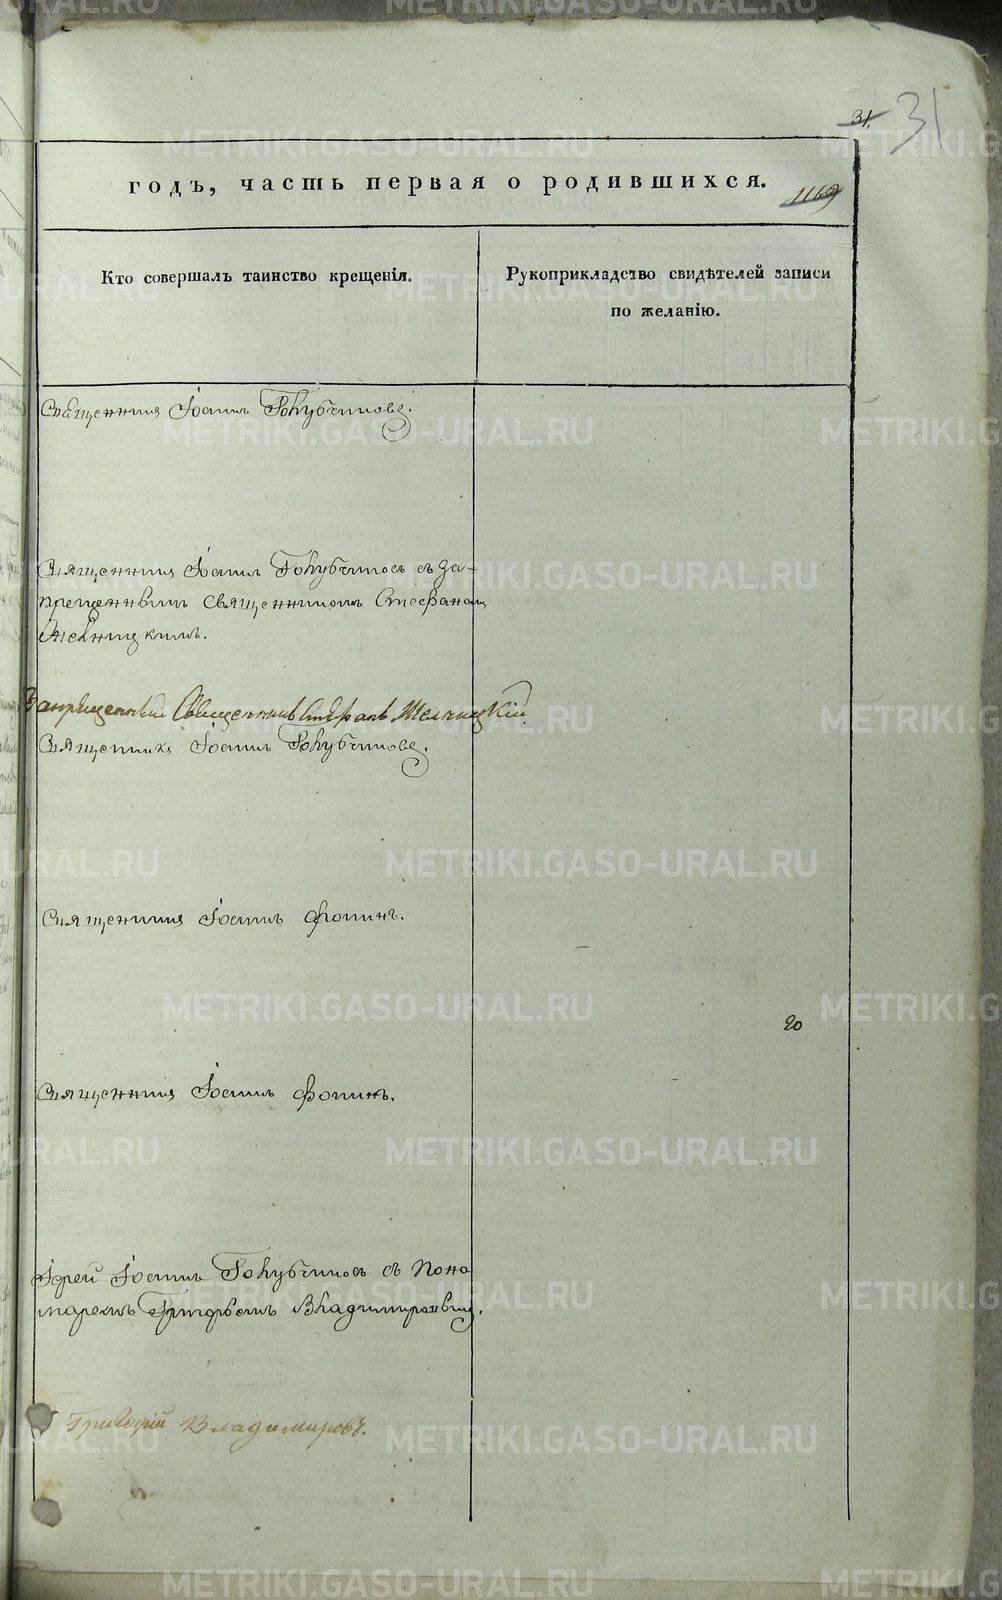 31. 31
годъ, часть первая о родившихся. 1169
Кто совершалъ таинство крещенія.
Рукоприкладство свидѣтелей записи
по желанію.
Священникъ Іоаннъ Голубчиковъ.
Священникъ Іоаннъ Голубчиковъ съ за-
прещеннымъ священникомъ Стефаномъ
Желницкимъ.
Запрещенный Священникъ Стефанъ Желницкій
Священникъ Іоаннъ Голубчиковъ.
Священникъ Іоаннъ Фоминъ.
20
Священникъ Іоаннъ Фоминъ.
Іерей Іоаннъ Голубчиковъ съ Поно
маремъ Григорьемъ Владимировымъ.
Григорій Владимировъ.
METRIKI.GASO-URAL.RU